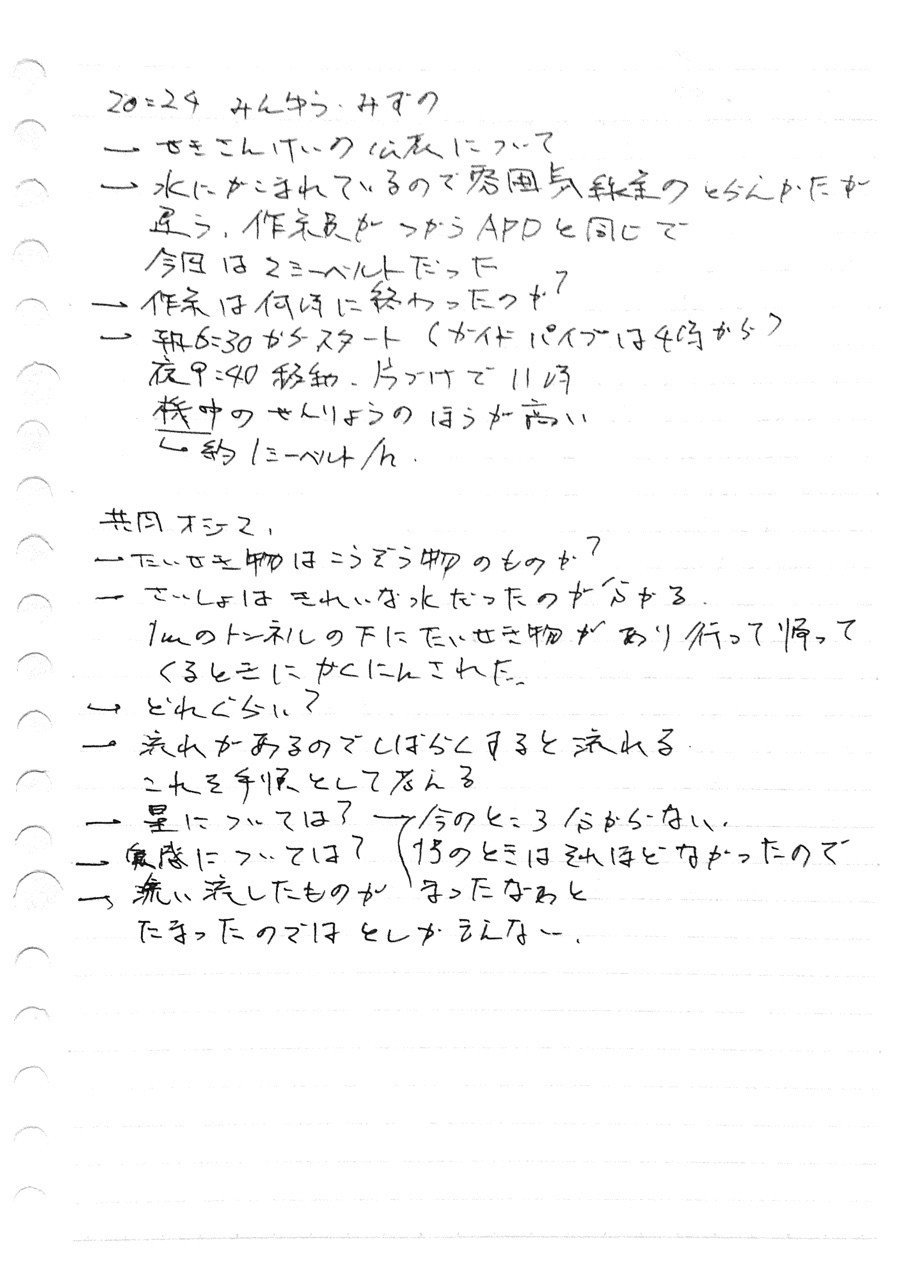 20:24 みんゆう・みずの
→ せきさんけいの公表について
→ 水にかこまれているので雰囲気線量のとらえかたが
違う、作業員がつかうAPDと同じで
今回は2ミーベルトだった
→ 作業は何時に終わったのか?
→ 朝6:30からスタート(ガイドパイプは4時から)
夜9:40移動、片づけで11時
機中のせんりょうのほうが高い
↳ 約1ミーベルト/h.
共同
→ たいせき物はこうぞう物のものか?
→ さいしょはきれいな水だったのが分かる.
1mのトンネルの下にたいせき物があり行って帰って
くるときにかくにんされた.
→ どれぐらい?
→ 流れがあるのでしばらくすると流れる.
これを手順として考える
→ 量については? → 今のところ分からない.
→ については? 15のときはそれほどなかったので
→ 洗い流したものが まったなあと
たまったのではとしか言えない.